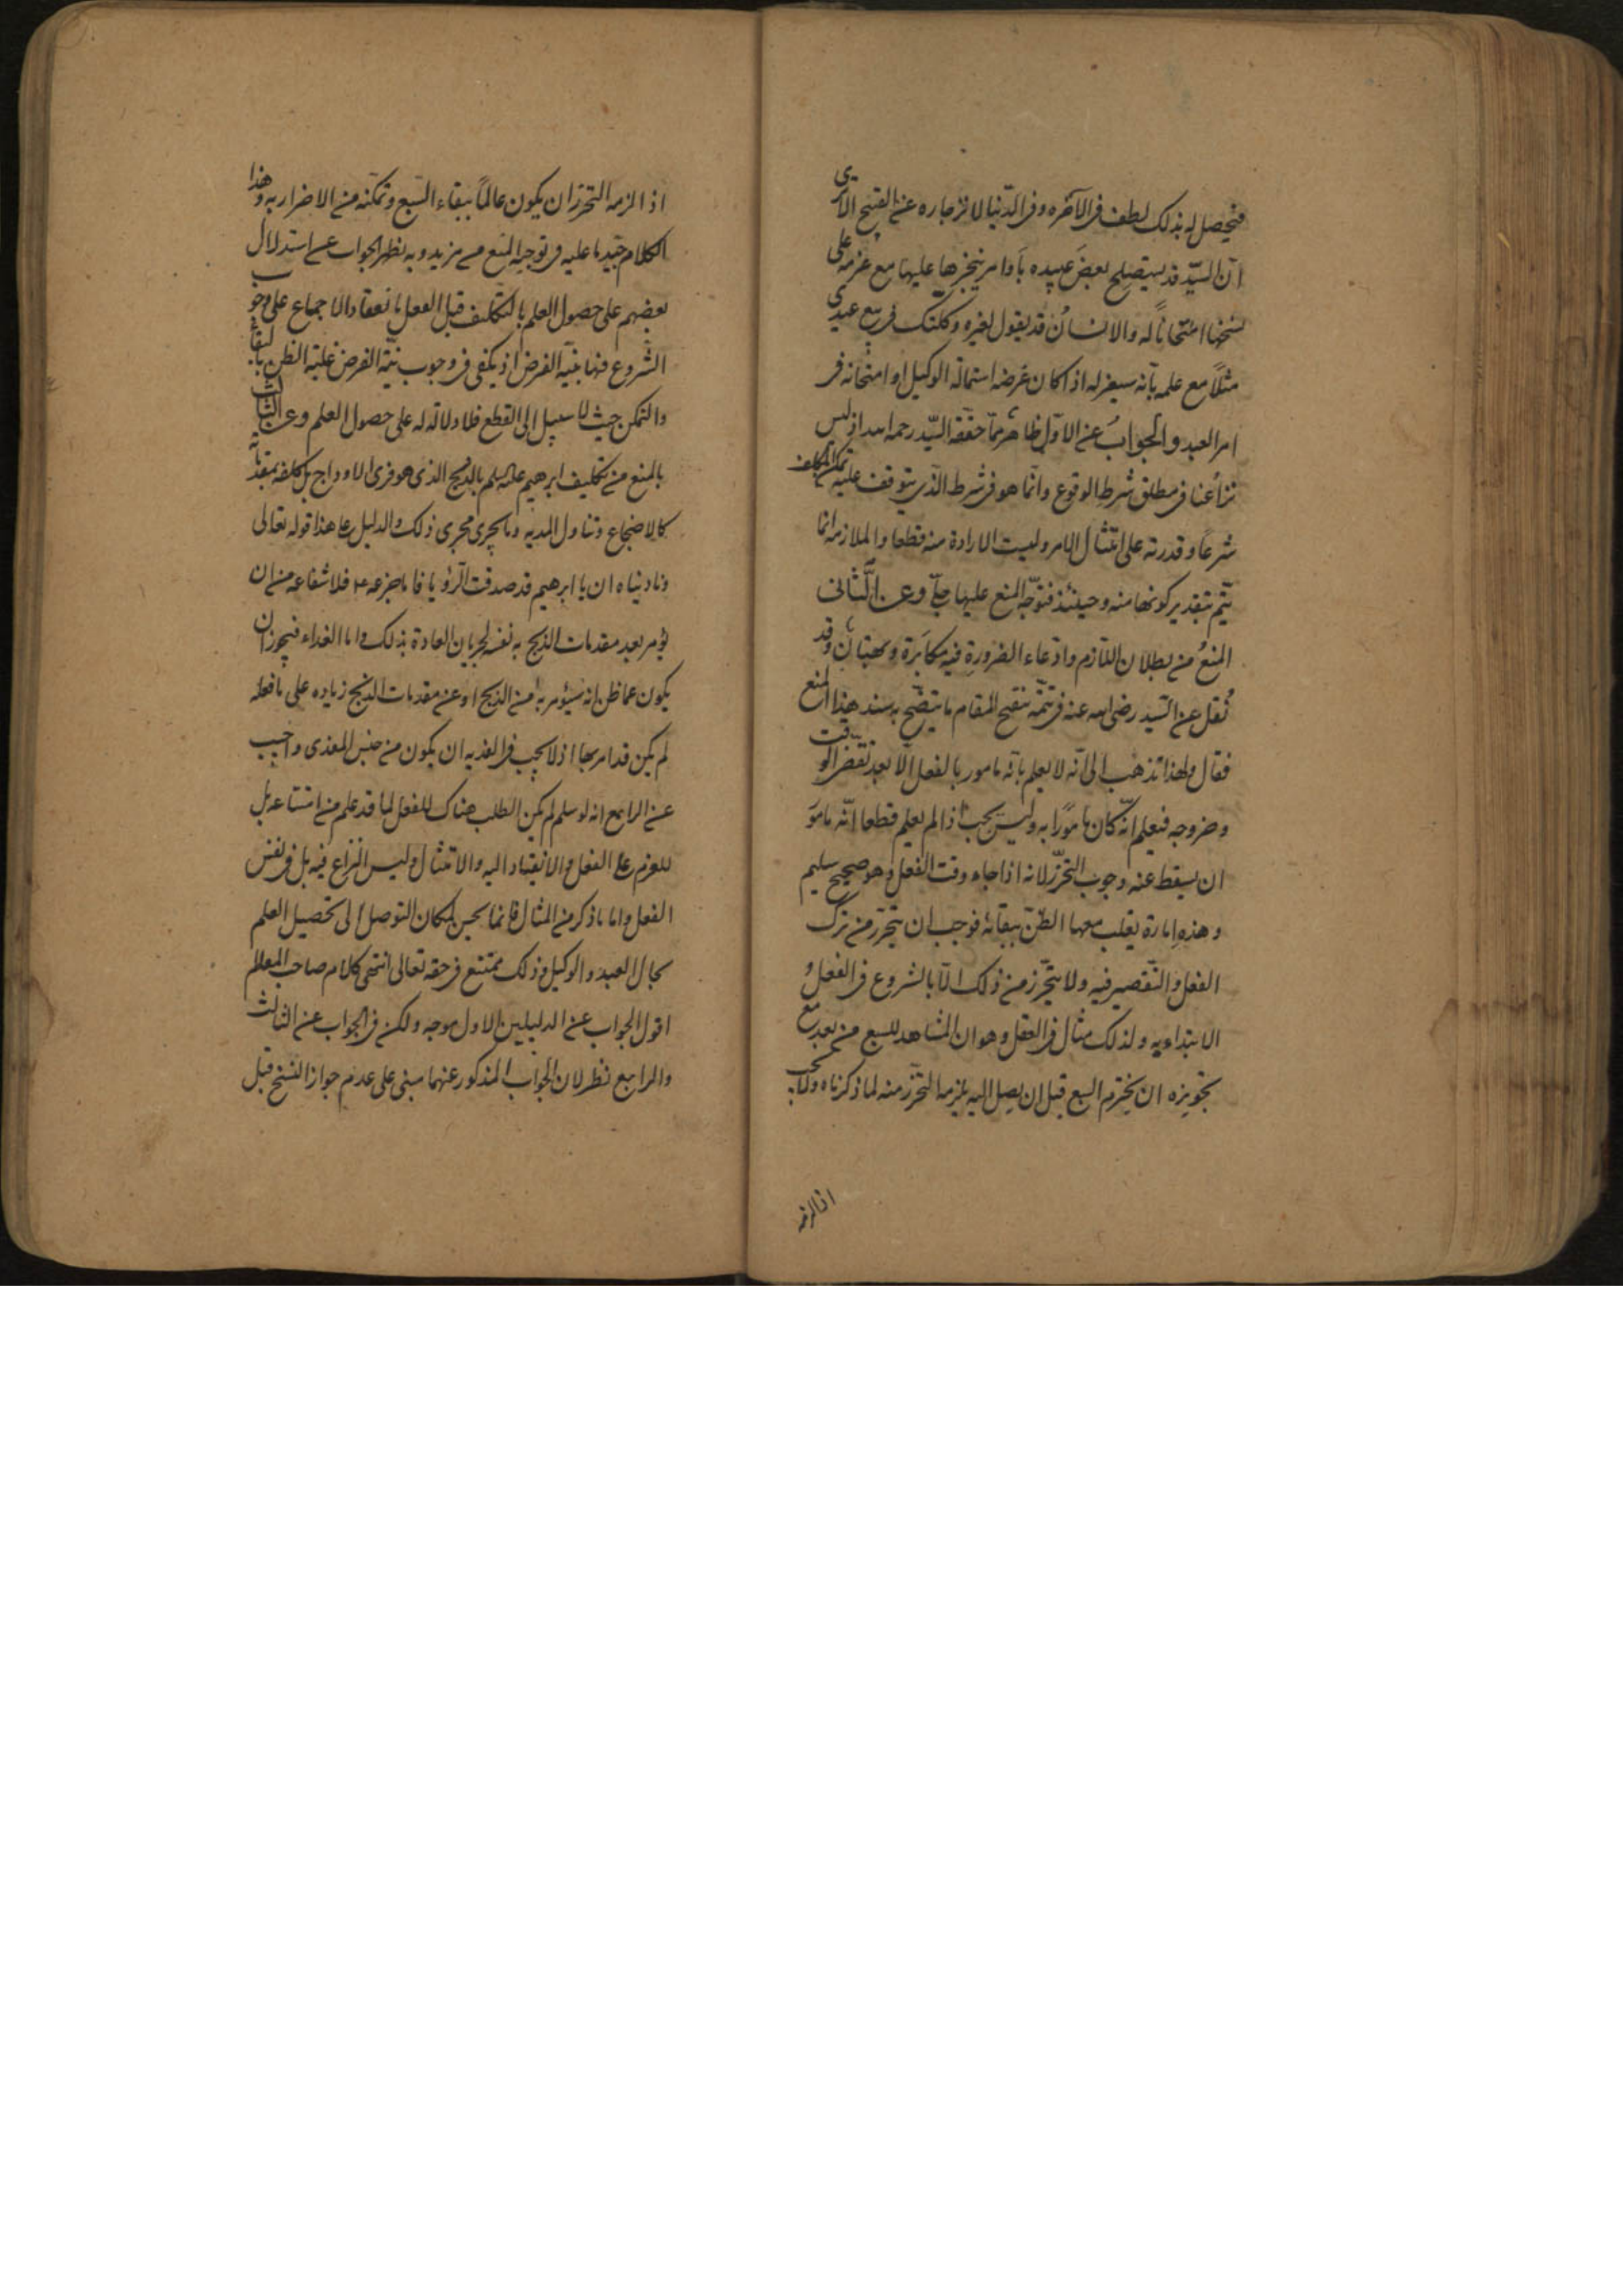 فيحصل له بذلك لطف فى الآخرة وفى الدنيا لانزجاره عن القبيح الا ترى
ان السيد قد يستصلح بعض عبيده باوامر ينجزها عليها مع عزمه على
نسخها امتحاناً له والانسان قد يقول لغيره وكلتك فى بيع عبدى
مثلاً مع علمه بانه سيعزله اذا كان غرضه استمالة الوكيل او امتحانه فى
امر العبد والجواب عن الاول ظاهر مما حققه السيد رحمه الله اذ ليس
نزاعنا فى مطلق شرط الوقوع وانما هو فى شرط الذى يتوقف عليه تمكن المكلف
شرعا وقدرته على امتثال الامر وليست الارادة منه قطعا والملازمة انما
يتم بتقدير كونها منه وحينئذ فتوجه المنع عليها جلى وعن الثانى
المنع من بطلان اللازم وادعاء الضرورة فيه مكابرة وبهتان وقد
نقل عن السيد رضى الله عنه فى تتمة تنقيح المقام ما يتضح به سند هذا المنع
فقال ولهذا نذهب الى انه لا يعلم بانه مامور بالفعل الا بعد تقضى الوقت
وخروجه فيعلم انه كان مامورا به وليس يجب اذا لم يعلم قطعا انه مامور
ان يسقط عنه وجوب التحرز لانه اذا جاء وقت الفعل وهو صحيح سليم
وهذه امارة يغلب معها الظن ببقائه فوجب ان يتحرز من ترك
الفعل والتقصير فيه ولا يتحرز من ذلك الا بالشروع فى الفعل و
الابتداء به ولذلك مثال فى العقل وهو ان المشاهد للسبع من بعد مع
تجويزه ان يخترم السبع قبل ان يصل اليه يلزمه التحرز منه لما ذكرناه ولا يجب
اذا لزمه
اذا لزمه التحرز ان يكون عالماً ببقاء السبع وتمكنه من الاضرار به وهذا
الكلام جيد ما عليه فى توجيه المنع من مزيد وبه يظهر الجواب عن استدلال
بعضهم على حصول العلم بالتكليف قبل الفعل بانعقاد الاجماع على وجوب
الشروع فيها بنية الفرض اذ يكفى فى وجوب نية الفرض غلبة الظن بالبقاء
والتمكن حيث لا سبيل الى القطع فلا دلالة له على حصول العلم وعن الثالث
بالمنع من تكليف ابرهيم عليه السلم بالذبح الذى هو فرى الاوداج بل كلف بمقدماته
كالاضجاع وتناول المدية وما يجرى مجرى ذلك والدليل على هذا قوله تعالى
وناديناه ان يا ابرهيم قد صدقت الرؤيا فاما جزعه ع فلاشفاعه من ان
يؤمر بعد مقدمات الذبح به نفسه لجريان العادة بذلك واما الفداء فيجوز ان
يكون عما ظن انه سيؤمر به من الذبح او عن مقدمات الذبح زيادة على ما فعله
لم يكن قد امر بها اذ لا يجب فى الفدية ان يكون من جنس المفدى واجيب
عن الرابع انه لو سلم لم يكن الطلب هناك للفعل لما قد علم من امتناعه بل
للعزم على الفعل والانقياد اليه والامتثال وليس النزاع فيه بل فى نفس
الفعل واما ما ذكر من المثال فانما يحسن لمكان التوصل الى تحصيل العلم
بحال العبد والوكيل وذلك ممتنع فى حقه تعالى انتهى كلام صاحب المعالم
اقول الجواب عن الدليلين الاول موجه ولكن فى الجواب عن الثالث
والرابع نظر لان الجواب المذكور عنهما مبنى على عدم جواز النسخ قبل